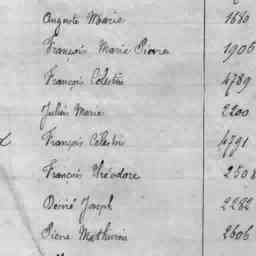 Auguste Marie 1680
François Marie Pierre 1906
François Célestin 4789
Julien Marie 2200
François Célestin 4791
François Théodore 2508
Désiré Joseph 2282
Pierre Mathurin 2606